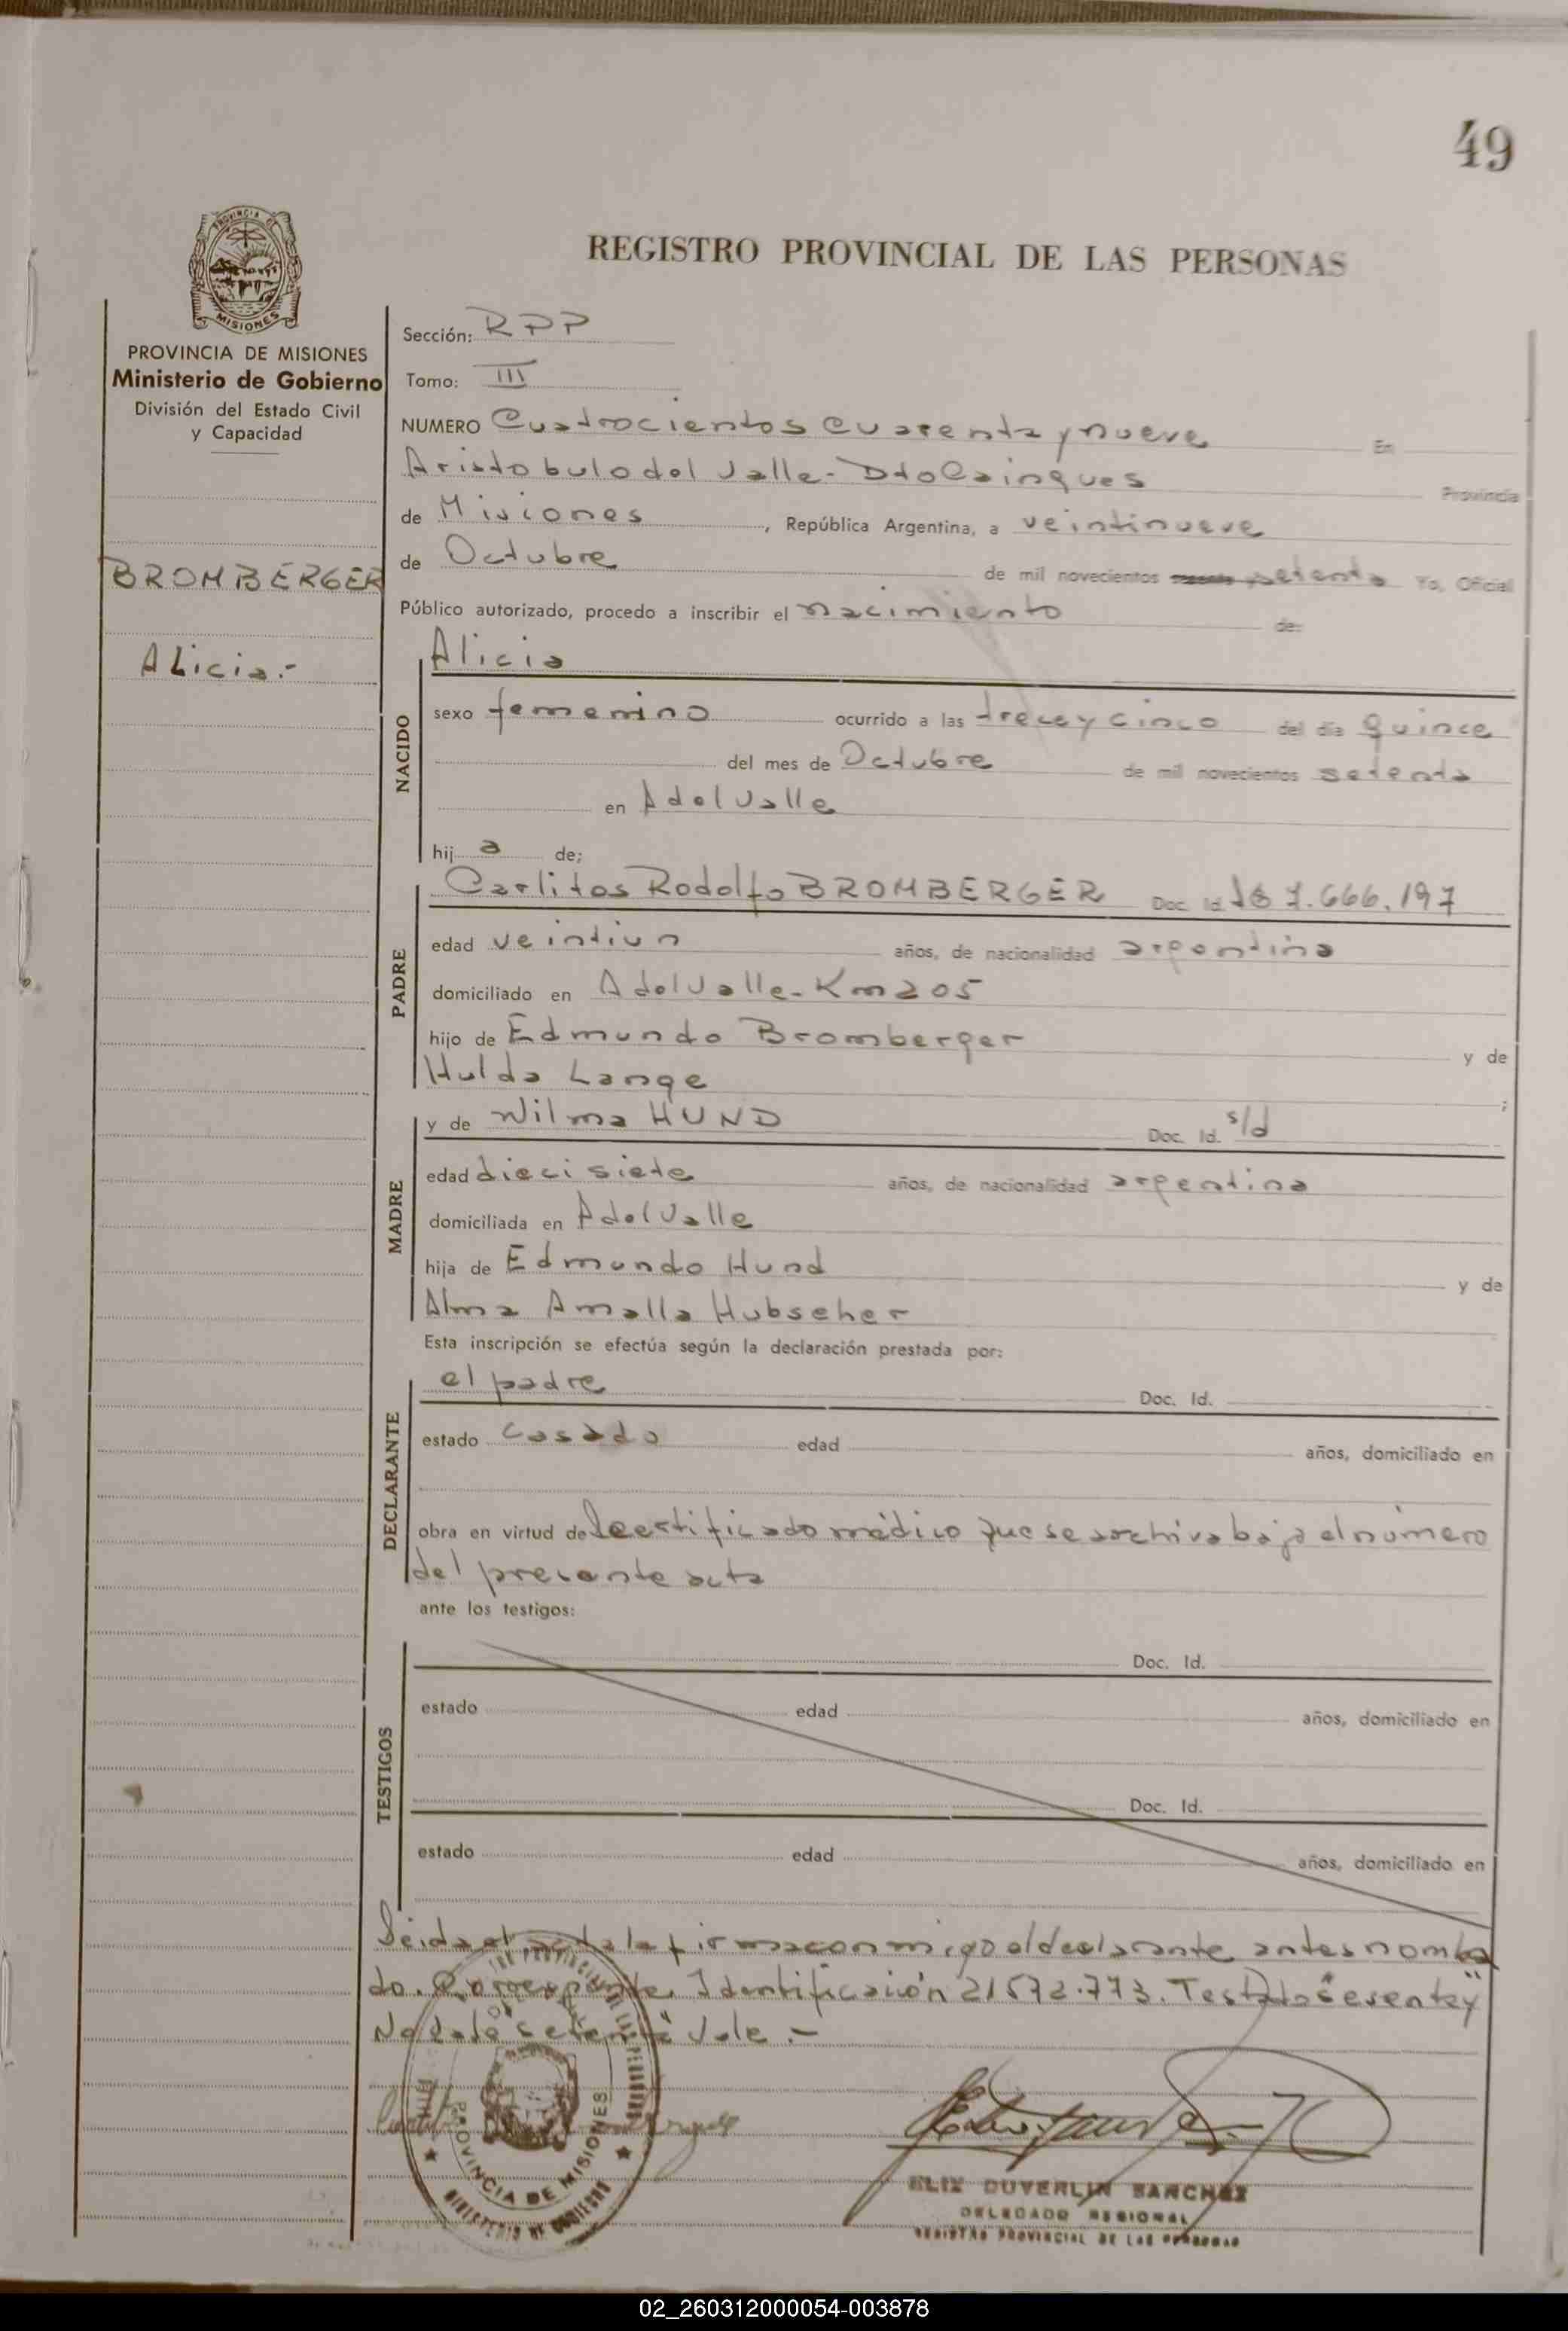 49
PROVINCIA DE
MISIONES
REGISTRO PROVINCIAL DE LAS PERSONAS
PROVINCIA DE MISIONES
Ministerio de Gobierno
División del Estado Civil
y Capacidad
BROMBERGER
ALicia.-
Sección: RPP
Tomo: III
NUMERO Cuatrocientos cuarenta y nueve En
Aristobulo del Valle - Dto Cainguas Provincia
de Misiones, República Argentina, a veintinueve
de Octubre de mil novecientos setenta Yo, Oficial
Público autorizado, procedo a inscribir el nacimiento de:
NACIDO
Alicia
sexo femenino ocurrido a las trece y cinco del día quince
del mes de Octubre de mil novecientos setenta
en A del Valle
hij a de;
PADRE
Carlitos Rodolfo BROMBERGER Doc. Id. 7.666.197
edad veintiun años, de nacionalidad argentina
domiciliado en A del Valle - Km 205
hijo de Edmundo Bromberger y de
Hulda Lange ;
MADRE
y de Wilma HUND Doc. Id. s/d
edad diecisiete años, de nacionalidad argentina
domiciliada en A del Valle
hija de Edmundo Hund y de
Alma Amalla Hubscher
Esta inscripción se efectúa según la declaración prestada por:
DECLARANTE
el padre Doc. Id.
estado casado edad años, domiciliado en
obra en virtud de certificado médico que se archiva bajo el número
del presente acta
ante los testigos:
TESTIGOS
Doc. Id.
estado edad años, domiciliado en
Doc. Id.
estado edad años, domiciliado en
Leida el acta la firma conmigo el declarante antes nombra
do. Corresponde Identificación 21572.773. Testado "esenta y"
"setenta" Vale.-
PROVINCIA DE MISIONES
MINISTERIO DE GOBIERNO
ELIX DUVERLIN SANCHEZ
DELEGADO REGIONAL
REGISTRO PROVINCIAL DE LAS PERSONAS
02_260312000054-003878